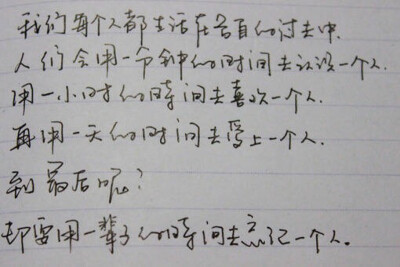 我们每个人都生活在各自的过去中.
人们会用一分钟的时间去认识一个人.
用一小时的时间去喜欢一个人.
再用一天的时间去爱上一个人.
到最后呢?
却要用一辈子的時间去忘记一个人.